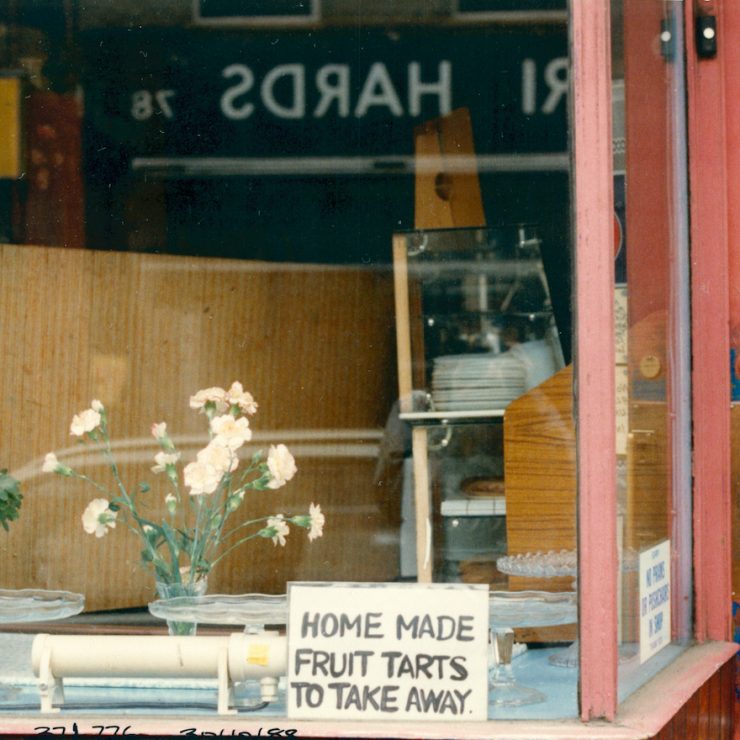 RI HARDS 78
HOME MADE
FRUIT TARTS
TO TAKE AWAY.
NO PRAMS
OR PUSHCHAIRS
IN SHOP